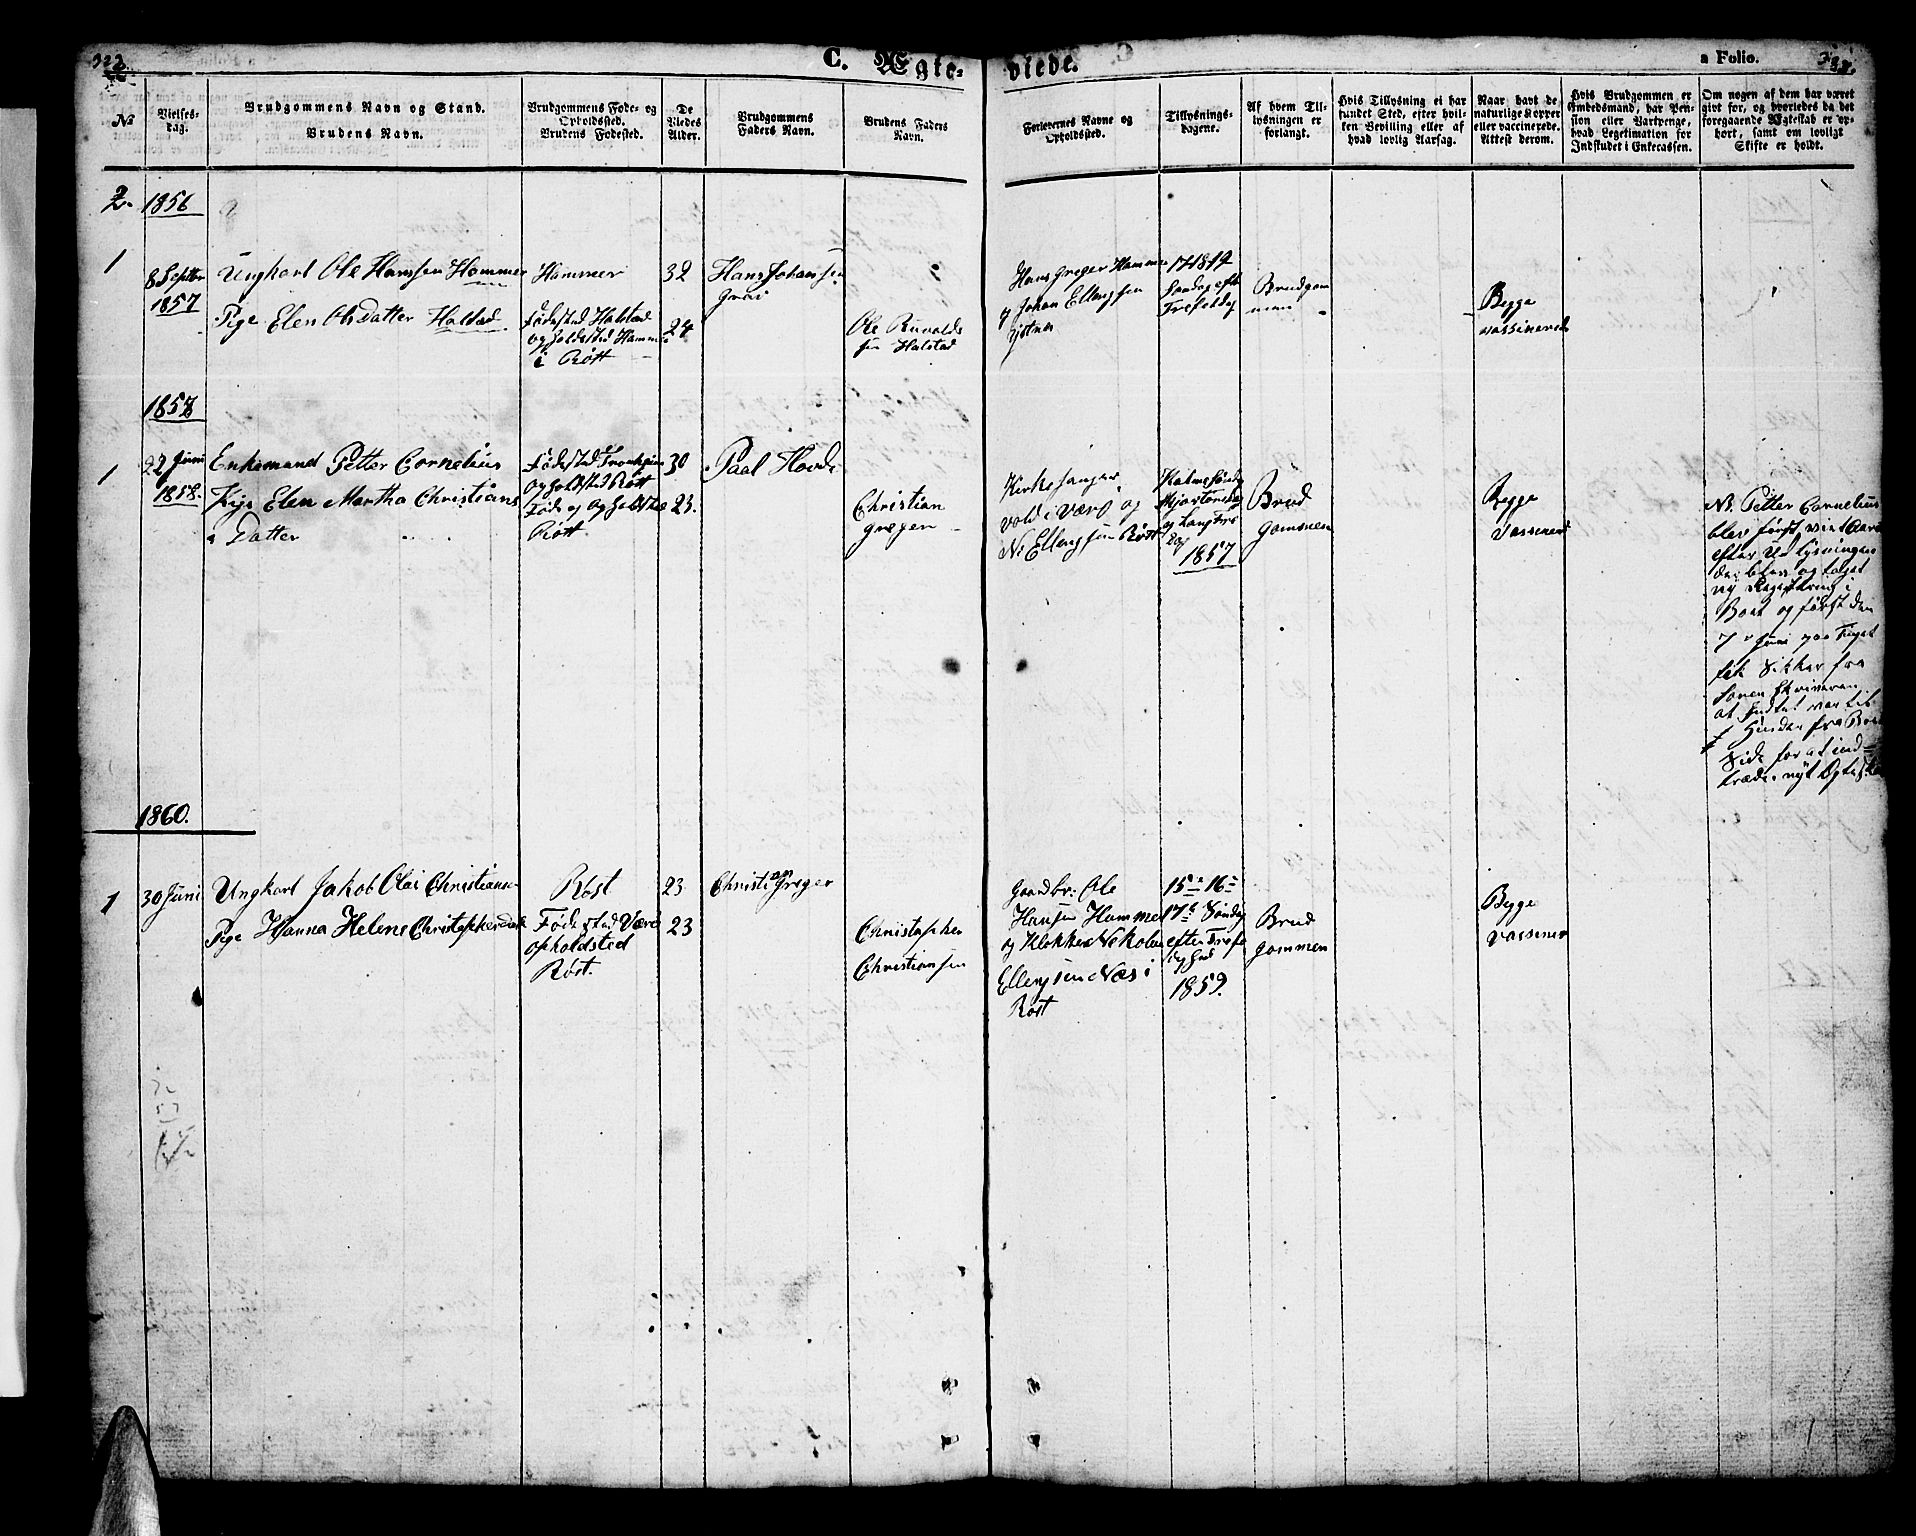 323
C. Ægte-
viede.
a Folio.
No
Vielses-
dag.
Brudgommens Navn og Stand.
Brudens Navn.
Brudgommens Føde- og
Opholdssted.
Brudens Fødested.
De
Viedes
Alder.
Brudgommens
Faders Navn.
Brudens Faders
Navn.
Forlovernes Navne og
Opholdssted.
Tillysnings-
dagene.
Af hvem Til-
lysningen er
forlangt.
Hvis Tillysning ei har
fundet Sted, efter hvil-
ken Bevilling eller af
hvad lovlig Aarsag.
Naar havt de
naturlige Kopper
eller vaccinerede.
Attest derom.
Hvis Brudgommen er
Embedsmand, har Pen-
sion eller Vartpenge,
hvad Legitimation for
Indskudet i Enkecassen.
Om nogen af dem har været
givt for, og hvorledes da det
foregaaende Ægteskab er op-
hørt, samt om lovligt
Skifte er holdt.
2. 1856
1
8 Septbr
1857
Ungkarl Ole Hanssen Hammer
Pige Elen Olsdatter Halstad
Hammer
Fødested Halstad
Opholdested Hammer
i Röst
32
24
Hans Johanssen
Ole Runolds
sen Halstad
Hans Greger Hammer
og Johan Ellengsen
17 18 19
Søndag efter
Trefoldig
Brudgom
men
Begge
vassinerede
1858
1
22 Juni
1858.
Enkemand Petter Cornelius
Pige Elen Martha Christians
Datter
Fødested Tronhjem
Opholdsted Röst
Føde og Opholdsted
Röst
30
23.
Paal Hovde
Christian
Gregersen
Kirkesanger
vold i Værø og
N: Ellengsen Röst
og Langfre
dag
1857
Brud
Gommen
Begge
Vassinered
N: Petter Cornelius
blev først viet Aaret
efter Udlysningen
ny Registering i
Boet og først den
7de Juni
fik Sikker fra
Soren Skriveren
at Indtet var til
Hinder fra Boets
Side for at ind=
træde i nyt Ægteskab
1860.
1
30 Juni
Ungkarl Jakob Olai Christianse
Pige Hanna Helene Christopherdatt
Röst
Fødested Værø
opholdsted
Röst.
23
23
Christian Greger
Christopher
Christiansen
Gaardbr: Ole
Hansen Hammer
og Klokker Nekolai
Ellengsen Næs i
Röst
15de 16de
17de Søndag
efter Trefo
1859.
Brud
Gommen
Begge
vassiner